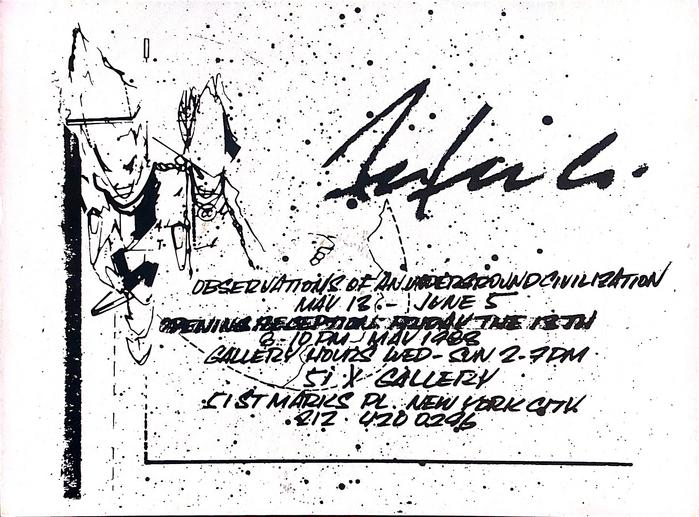 OBSERVATIONS OF AN UNDERGROUND CIVILIZATION
MAY 12 - JUNE 5
OPENING RECEPTION: FRIDAY THE 13TH
8-10 PM MAY 1988
GALLERY HOURS WED-SUN 2-7PM
51 X GALLERY
51 ST MARKS PL. NEW YORK CITY
212 420 0296